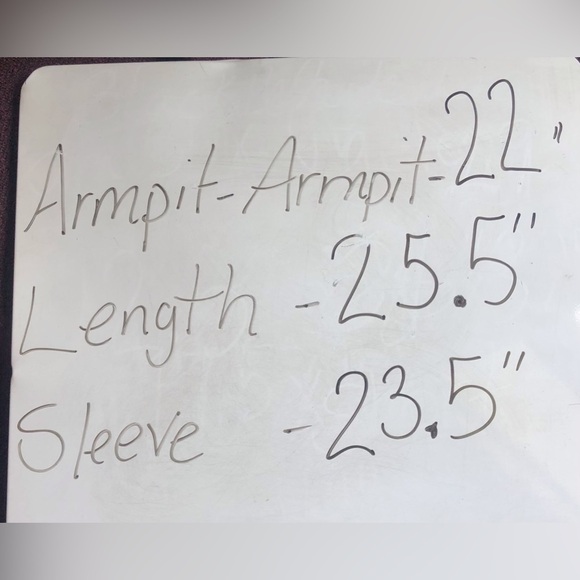 Armpit-Armpit-22"
Length - 25.5"
Sleeve - 23.5"